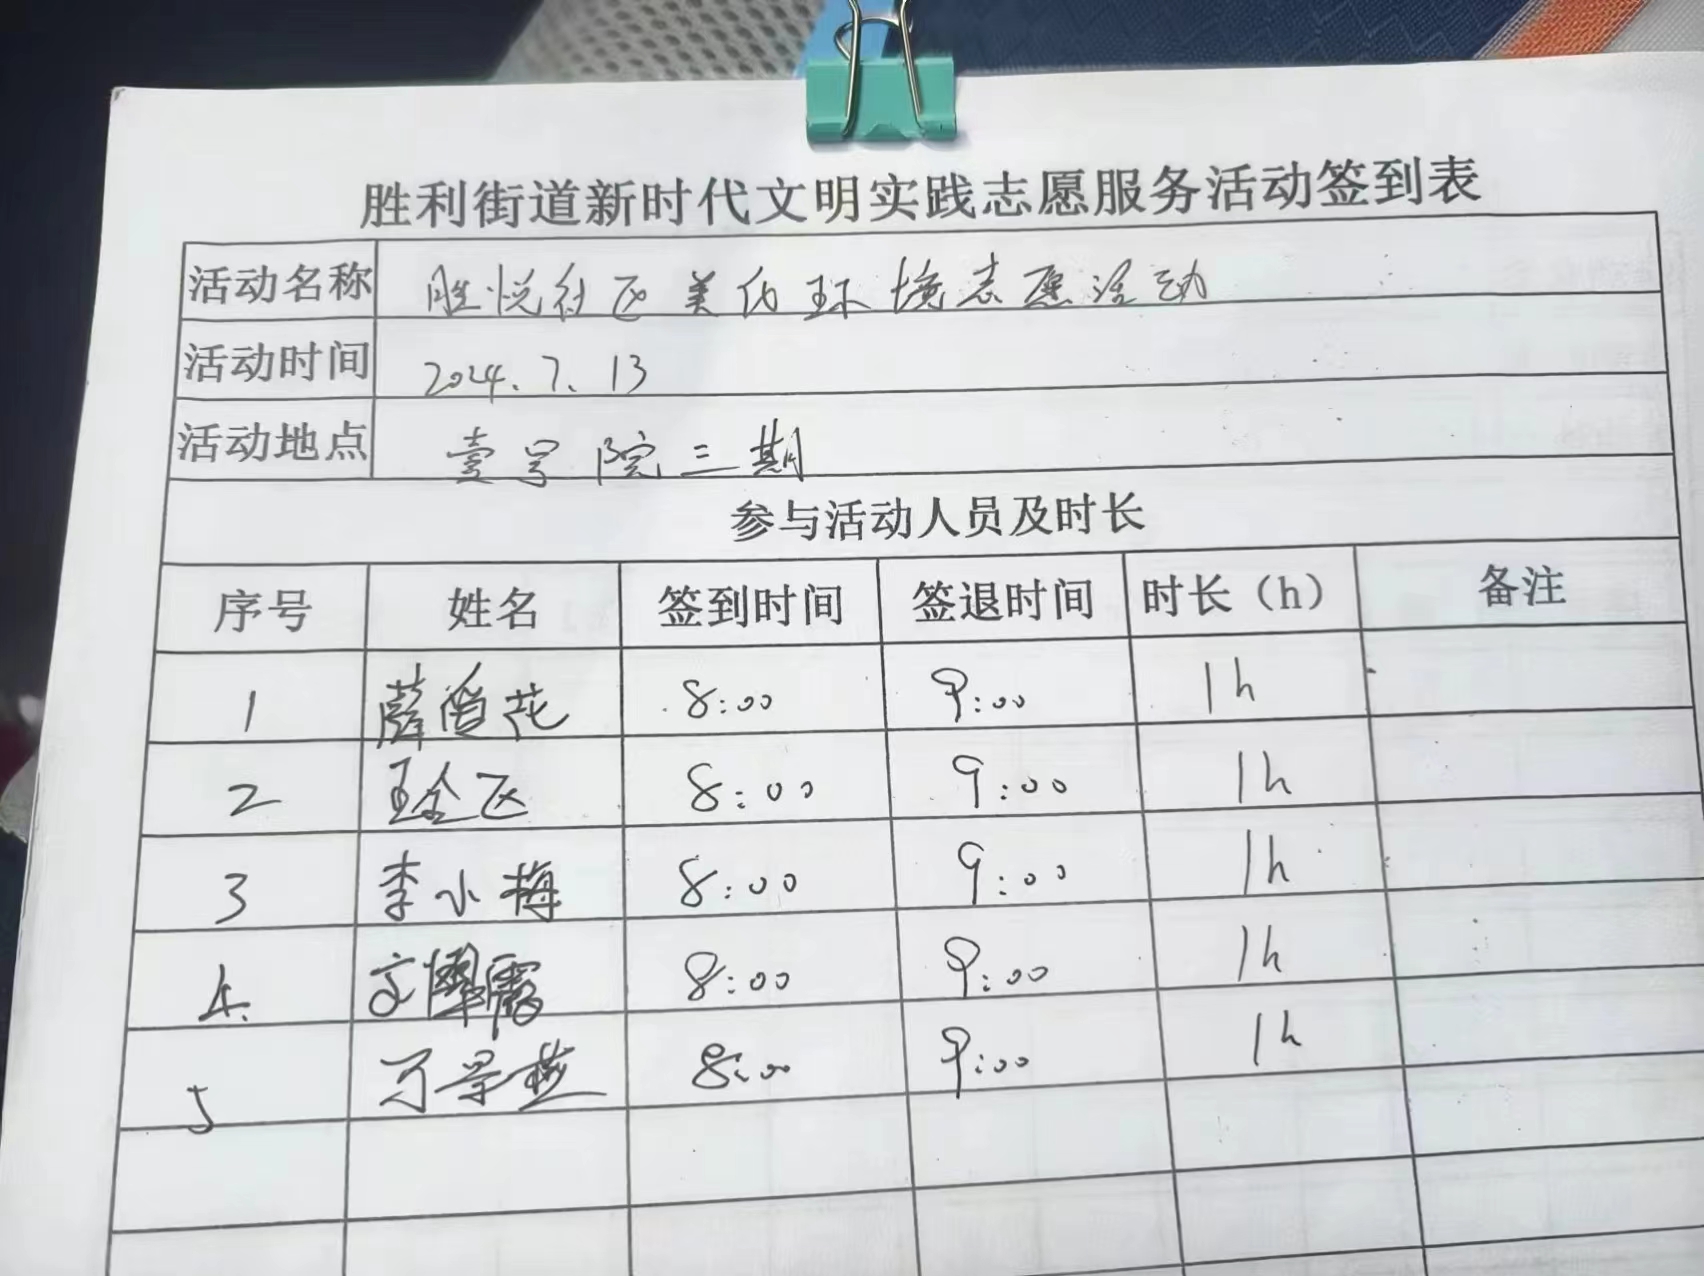 胜利街道新时代文明实践志愿服务活动签到表
活动名称 胜悦社区美化环境志愿活动
活动时间 2024.7.13
活动地点 壹号院三期
参与活动人员及时长
序号 姓名 签到时间 签退时间 时长（h） 备注
1 8:00 9:00 1h
2 8:00 9:00 1h
3 李小梅 8:00 9:00 1h
4. 8:00 9:00 1h
5 8:00 9:00 1h